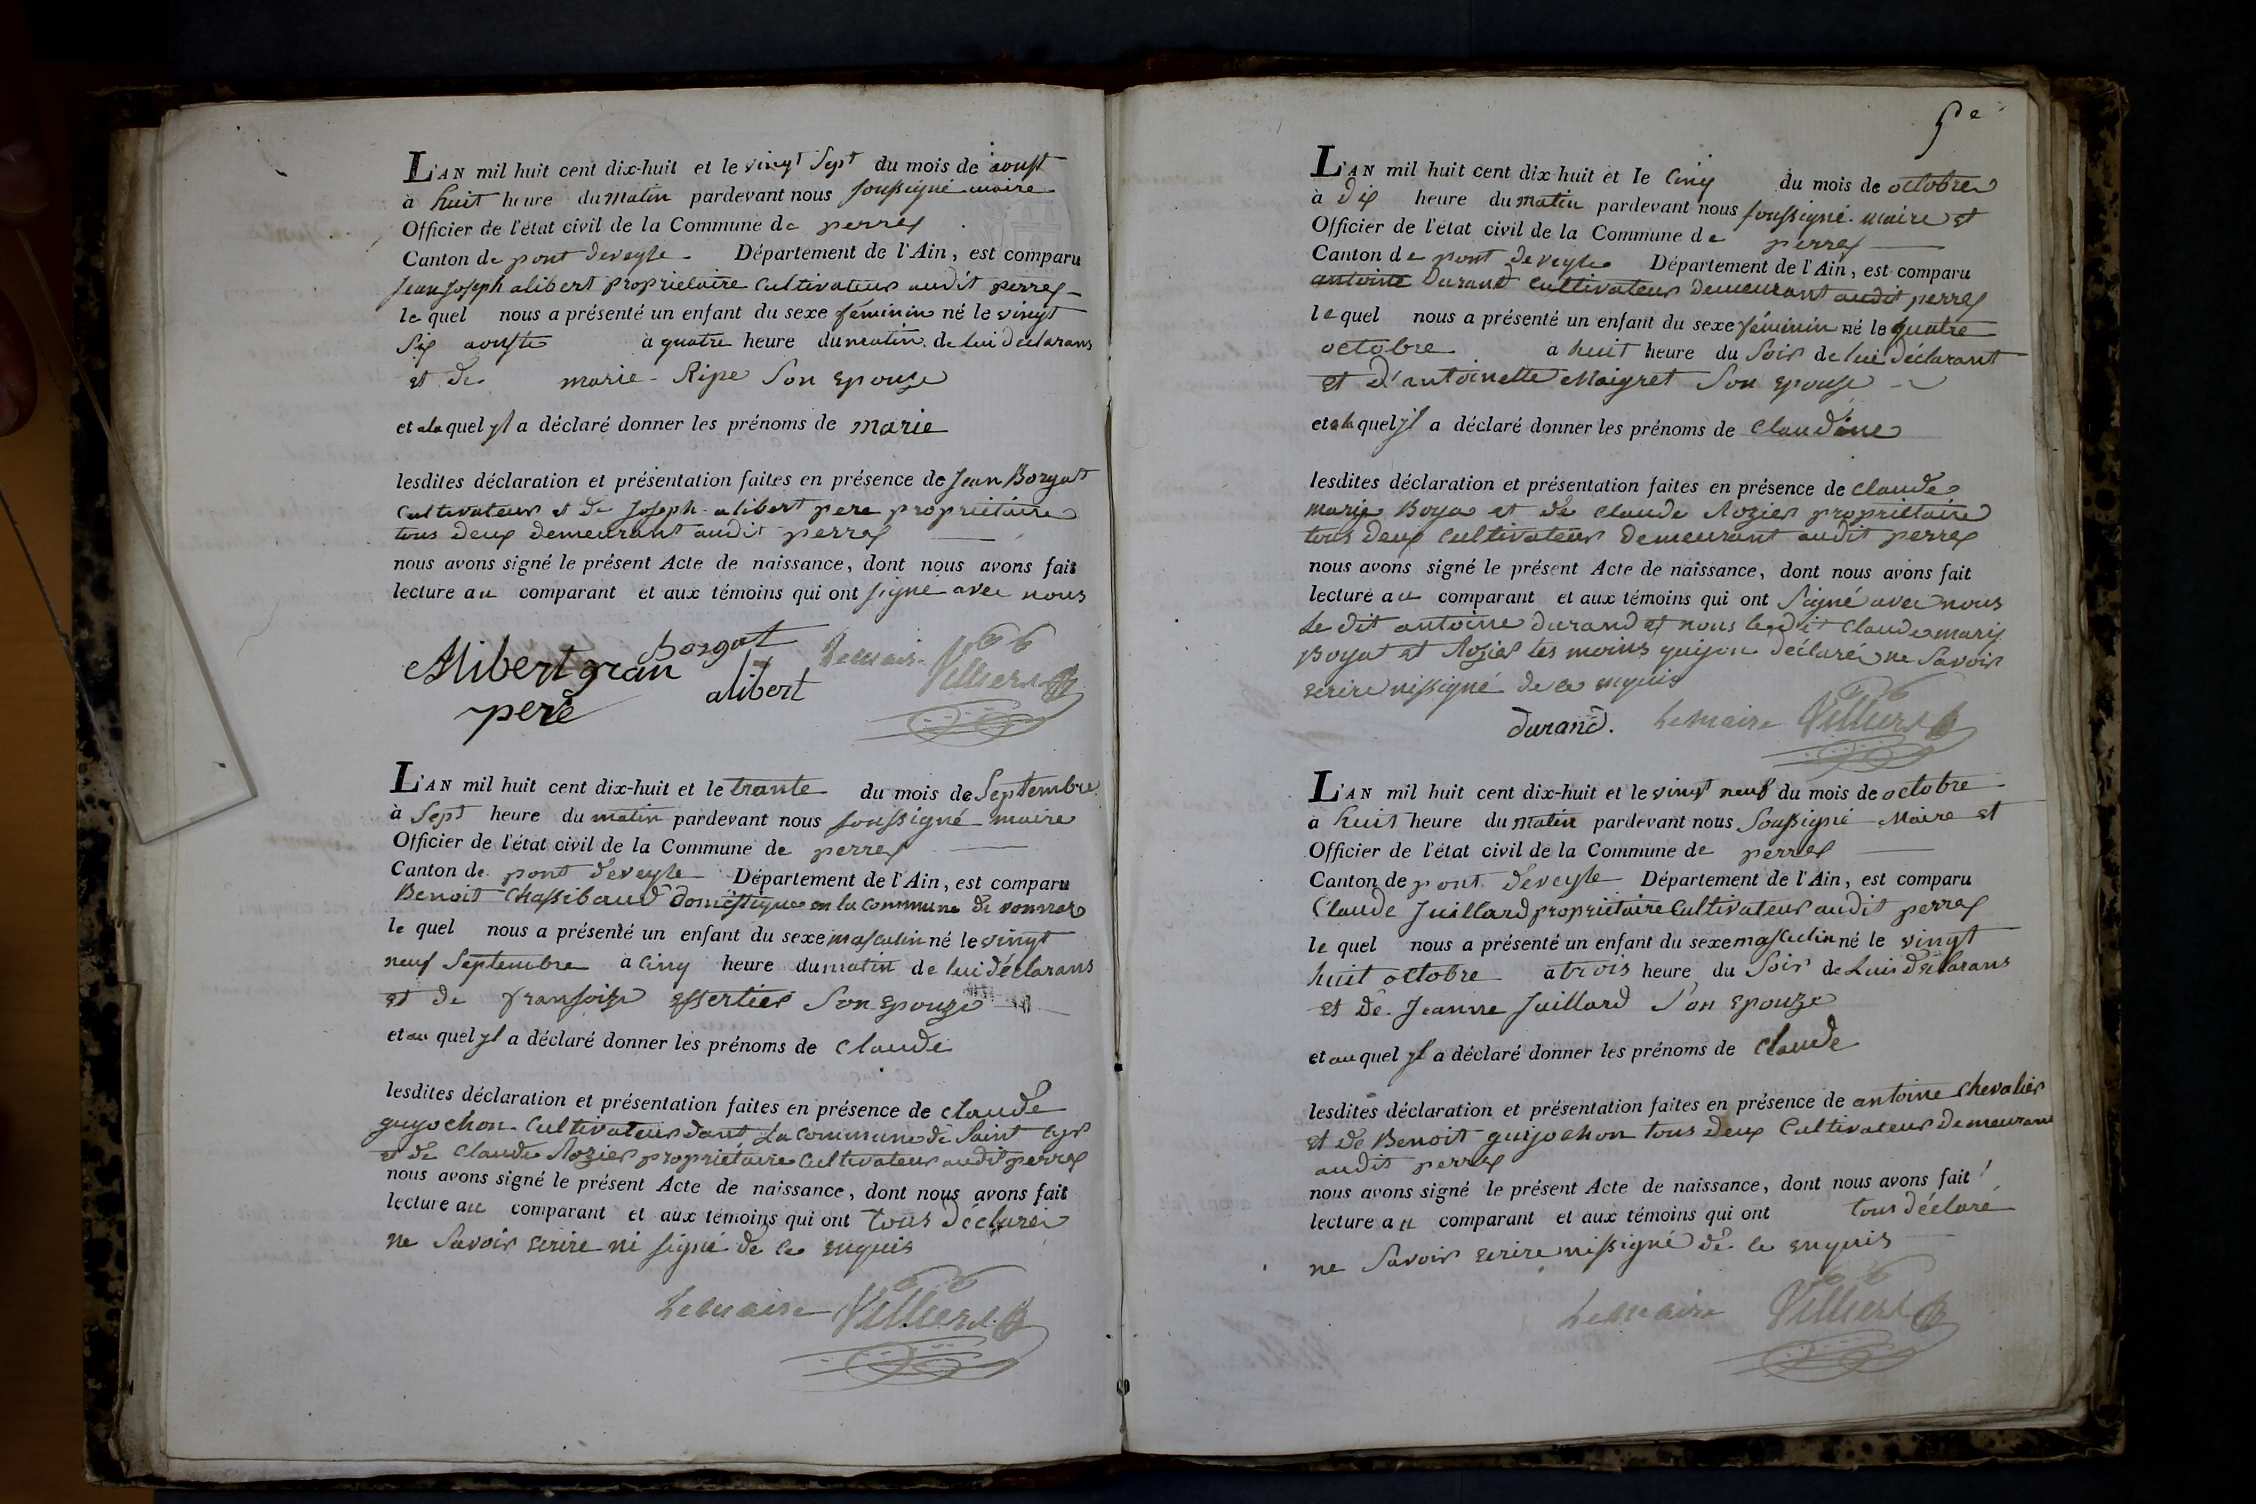 L'AN mil huit cent dix-huit et le vingt Sept du mois de aoust
à huit heure du matin pardevant nous soussigné maire
Officier de l'état civil de la Commune de perrex
Canton de pont deveyle Département de l'Ain, est comparu
Jean Joseph alibert proprietaire Cultivateur audit perrex
le quel nous a présenté un enfant du sexe féminin né le vingt
Six aouste à quatre heure du matin de lui déclarans
et de marie Ripe Son epouze
et a la quel yl a déclaré donner les prénoms de marie
lesdites déclaration et présentation faites en présence de Jean Borgat
Cultivateur et de Joseph alibert pere proprietaire
tous deux demeurant audit perrex
nous avons signé le présent Acte de naissance, dont nous avons fait
lecture au comparant et aux témoins qui ont signé avec nous
Alibert gran Borgat Lemaire Villierd
pere alibert
L'AN mil huit cent dix-huit et le trante du mois de Septembre
à Sept heure du matin pardevant nous soussigné maire
Officier de l'état civil de la Commune de perrex
Canton de pont deveyle Département de l'Ain, est comparu
Benoit Chassibaud domestique en la commune de vonnas
le quel nous a présenté un enfant du sexe masculin né le vingt
neuf Septembre à Cinq heure du matin de lui déclarans
et de fransoize essertier Son epouze
et au quel yl a déclaré donner les prénoms de Claude
lesdites déclaration et présentation faites en présence de claude
guyochon Cultivateur dant La commune de Saint Cyr
et de Claude Rozier propriétaire Cultivateur audit perrex
nous avons signé le présent Acte de naissance, dont nous avons fait
lecture au comparant et aux témoins qui ont tous déclaré
ne Savoir ecrire ni signé de ce enquis
Lemaire Villierd
5e
L'AN mil huit cent dix-huit et le Cinq du mois de octobre
à Dix heure du matin pardevant nous soussigné maire et
Officier de l'état civil de la Commune de perrex
Canton de pont deveyle Département de l'Ain, est comparu
antoine Durand Cultivateur Demeurant audit perrex
le quel nous a présenté un enfant du sexe féminin né le quatre
octobre a huit heure du Soir de lui déclarant
et d'antoinette Maigret Son epouse
et a la quel yl a déclaré donner les prénoms de Claudine
lesdites déclaration et présentation faites en présence de claude
marie Boya et de claude Rozier propriétaire
tous deux Cultivateur Demeurant audit perrex
nous avons signé le présent Acte de naissance, dont nous avons fait
lecture au comparant et aux témoins qui ont Signé avec nous
Le dit antoine durand et nous ledit Claude marie
Boyat et Rozier tes moins quijon déclaré ne Savoir
ecrire nissigné de ce enquis
durand. Lemaire Villierd
L'AN mil huit cent dix-huit et le vingt neuf du mois de octobre
à huit heure du matin pardevant nous Soussigné Maire et
Officier de l'état civil de la Commune de perrex
Canton de pont deveyle Département de l'Ain, est comparu
Claude Juillard proprietaire Cultivateur audit perrex
le quel nous a présenté un enfant du sexe masculin né le vingt
huit octobre a trois heure du Soir de Lui déclarans
et de Jeanne Juillard Son epouze
et au quel yl a déclaré donner les prénoms de Claude
lesdites déclaration et présentation faites en présence de antoine chevalier
et de Benoit guijochon tous deux Cultivateur Demeurant
audit perrex
nous avons signé le présent Acte de naissance, dont nous avons fait
lecture au comparant et aux témoins qui ont tous déclaré
ne Savoir ecrire nissigné de ce enquis
Lemaire Villierd